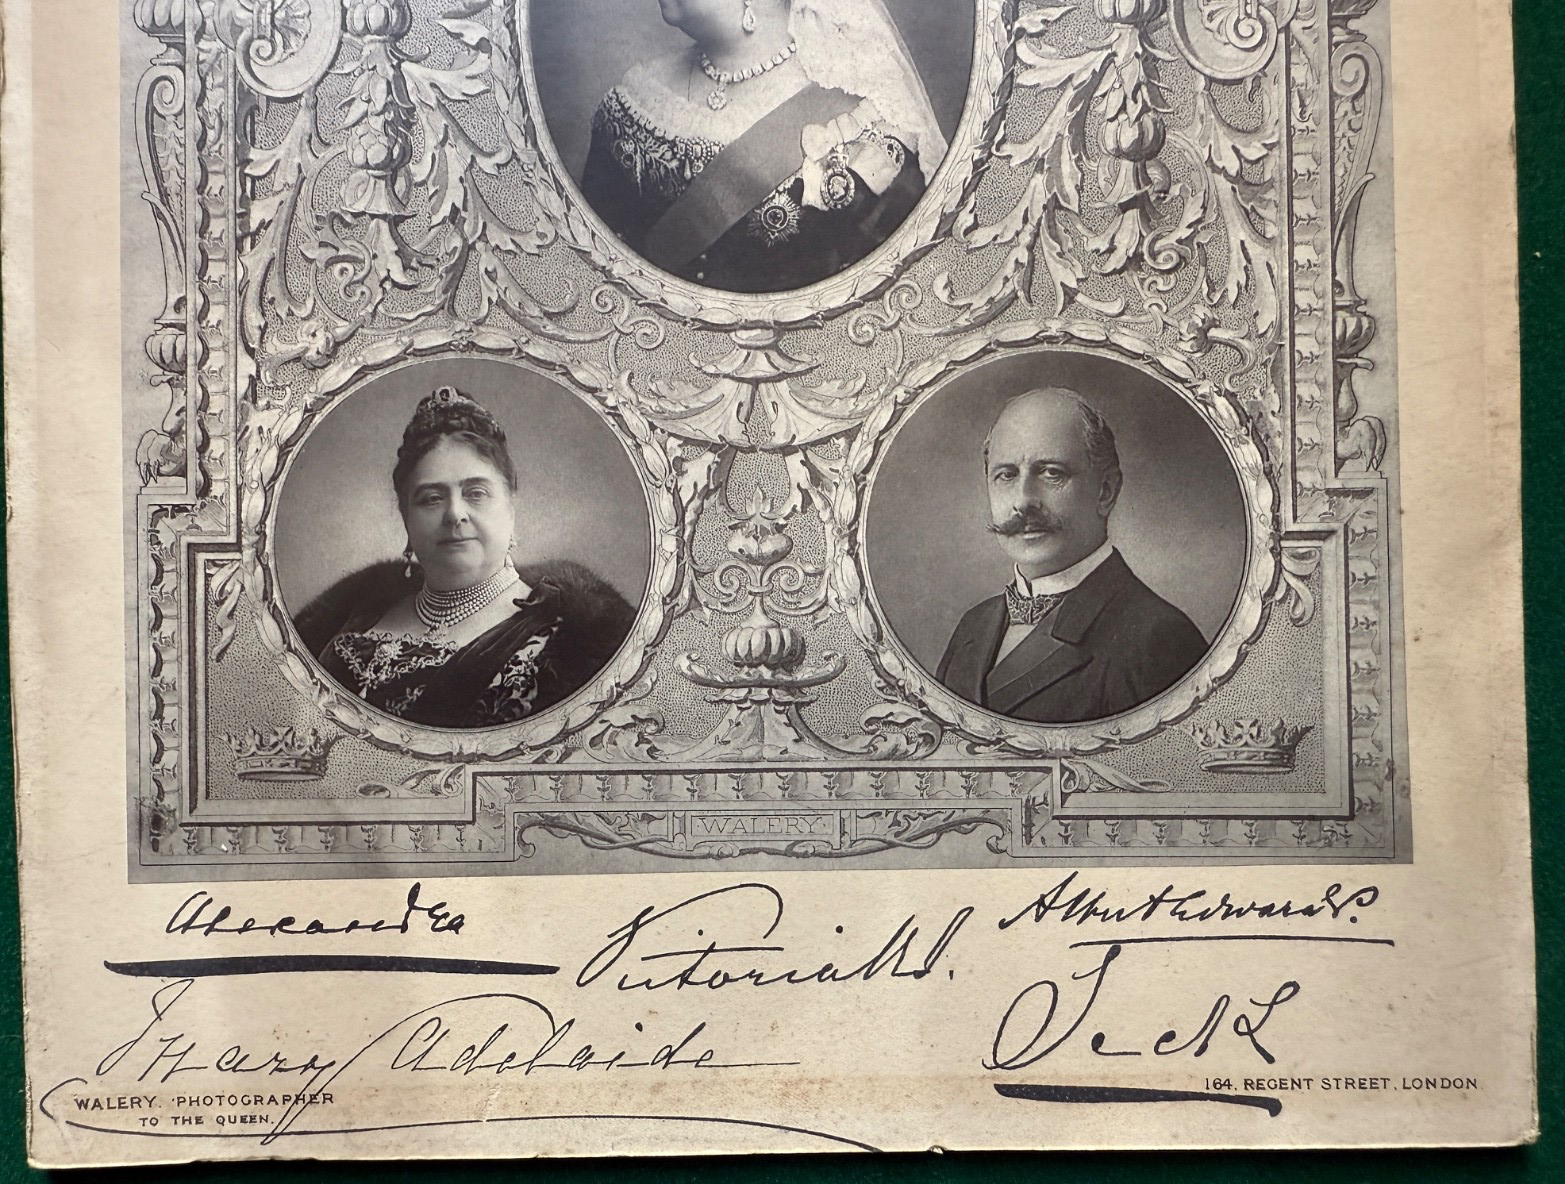 WALERY
Alexandra
Victoria RI.
Albert Edward P.
Mary Adelaide
Teck
WALERY. PHOTOGRAPHER
TO THE QUEEN.
164, REGENT STREET, LONDON